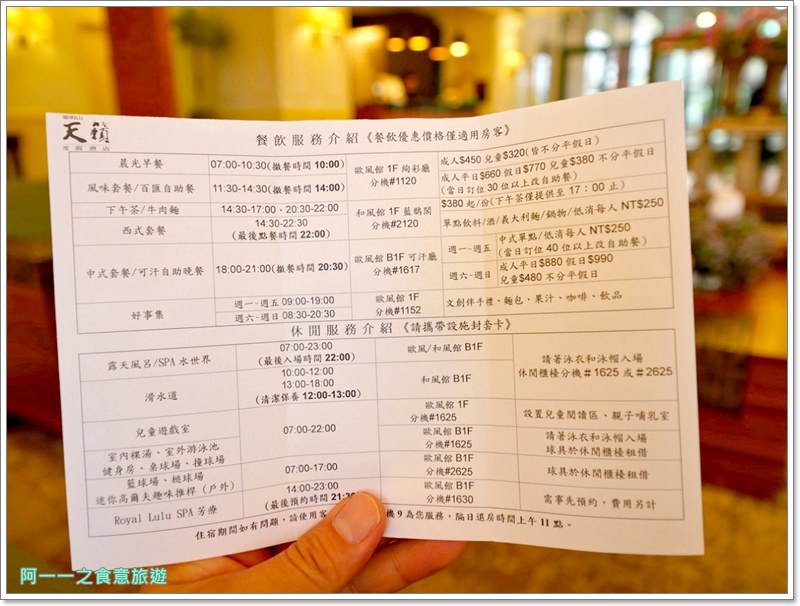 天籟
度假酒店
餐飲服務介紹《餐飲優惠價格僅適用房客》
晨光早餐 07:00-10:30(撤餐時間 10:00) 歐風館 1F 絢彩廳 分機#1120 成人$450 兒童$320(皆不分平假日)
風味套餐/百匯自助餐 11:30-14:30(撤餐時間 14:00) 成人平日$660 假日$770 兒童$380 不分平假日
(當日訂位 30 位以上改自助餐)
下午茶/牛肉麵 14:30-17:00、20:30-22:00 和風館 1F 藍鵲閣 分機#2120 $380 起/份(下午茶僅提供至 17：00 止)
西式套餐 14:30-22:30
(最後點餐時間 22:00) 單點飲料/酒/義大利麵/鍋物/低消每人 NT$250
中式套餐/可汗自助晚餐 18:00-21:00(撤餐時間 20:30) 歐風館 B1F 可汗廳 分機#1617 週一~週五 中式單點/低消每人 NT$250
(當日訂位 40 位以上改自助餐)
週六~週日 成人平日$880 假日$990
兒童$480 不分平假日
好事集 週一~週五 09:00-19:00 歐風館 1F 分機#1152 文創伴手禮、麵包、果汁、咖啡、飲品
週六~週日 08:30-20:30
休閒服務介紹《請攜帶設施封套卡》
露天風呂/SPA 水世界 07:00-23:00
(最後入場時間 22:00) 歐風/和風館 B1F 請著泳衣和泳帽入場
休閒櫃檯分機＃1625 或＃2625
滑水道 10:00-12:00
13:00-18:00
(清潔保養 12:00-13:00) 和風館 B1F
兒童遊戲室 07:00-22:00 歐風館 1F
分機#1625 設置兒童閱讀區、親子哺乳室
室內裸湯、室外游泳池
健身房、桌球場、撞球場 歐風館 B1F
分機#1625 請著泳衣和泳帽入場
球具於休閒櫃檯租借
籃球場、槌球場
迷你高爾夫趣味推桿（戶外） 07:00-17:00 歐風館 B1F
分機#2625 球具於休閒櫃檯租借
Royal Lulu SPA 芳療 14:00-23:00
(最後預約時間 21:30 歐風館 B1F
分機#1630 需事先預約，費用另計
住宿期間如有問題，請使用客 機 9 為您服務，隔日退房時間上午 11 點。
阿一一之食意旅遊